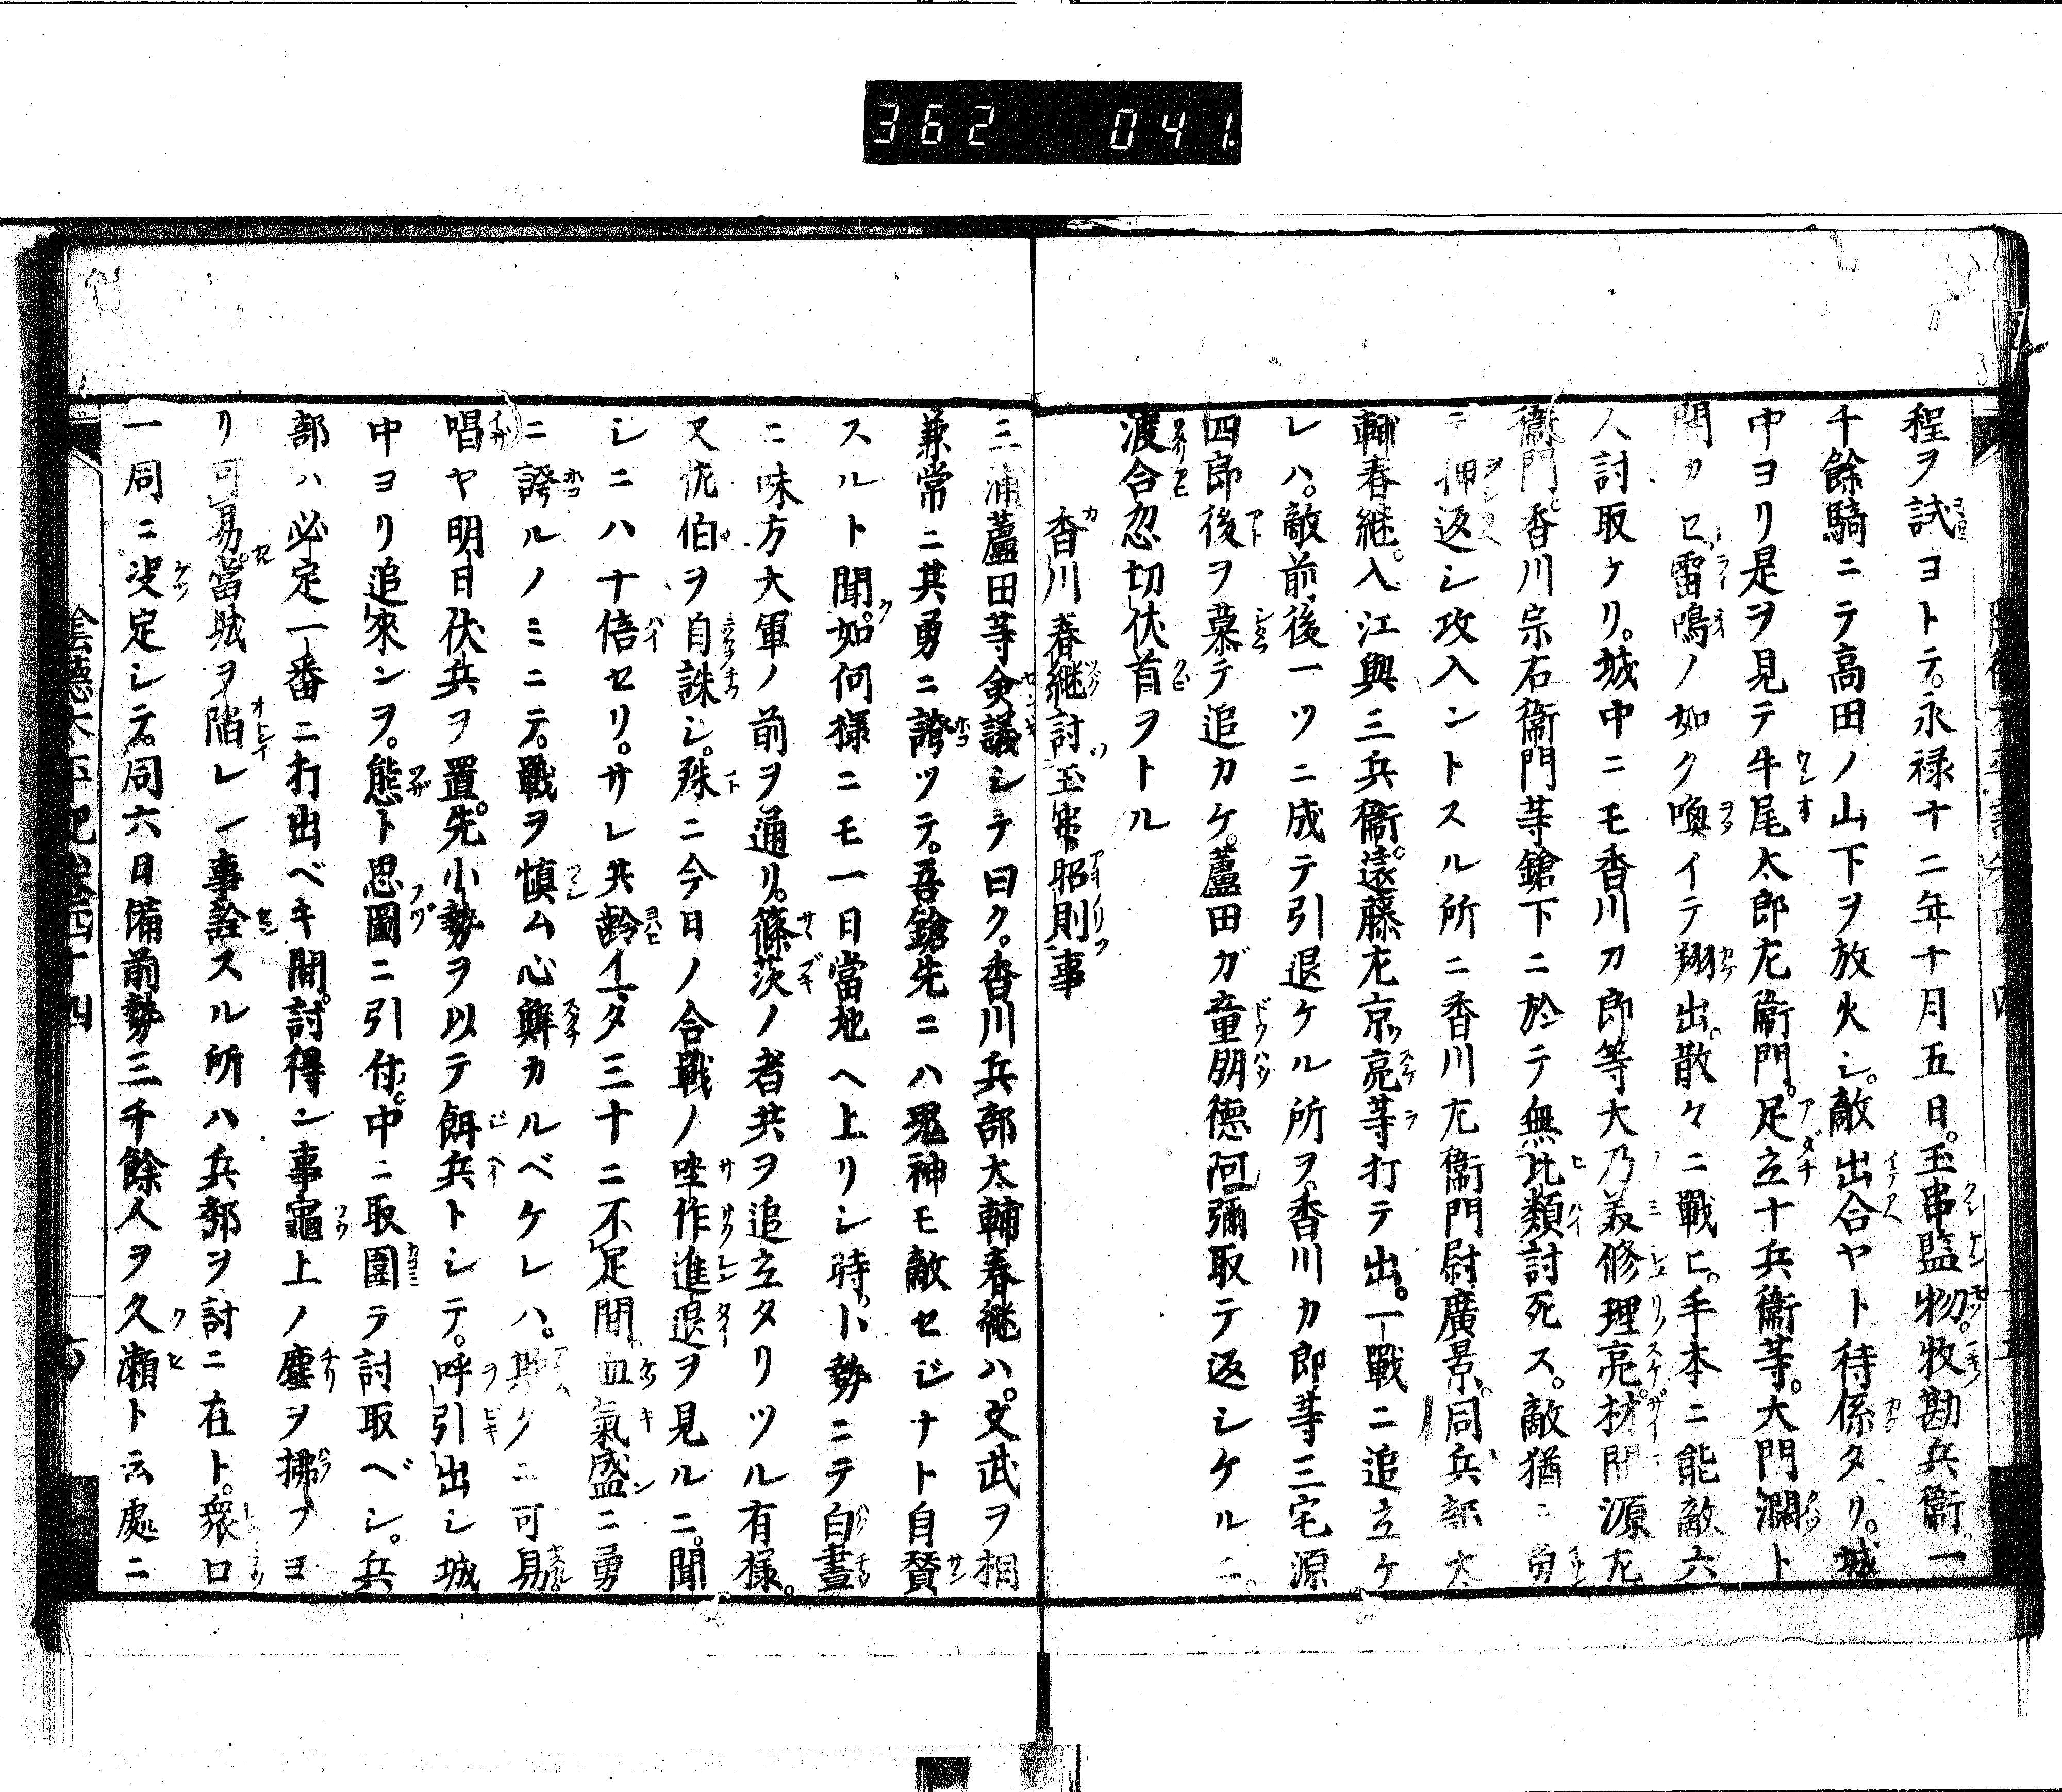 362 041
程ヲ試ヨトテ。永禄十二年十月五日。玉串監物。牧勘兵衞一
千餘騎ニテ高田ノ山下ヲ放火シ。敵出合ヤト待係タリ。城
中ヨリ是ヲ見テ牛尾太郎左衞門。足立十兵衞等。大門瀾ト
開カセ雷鳴ノ如ク喚イテ翔出。散々ニ戰ヒ。手本ニ能敵六
人討取ケリ。城中ニモ香川カ郎等大乃美修理亮。材間源左
衞門。香川宗右衞門等鎗下ニ於テ無比類討死ス。敵猶ニ勇
テ押返シ攻入ントスル所ニ香川左衞門尉廣景。同兵部太
輔春継。入江與三兵衞。遠藤左京亮等打テ出。一戰ニ追立ケ
レハ。敵前後一ツニ成テ引退ケル所ヲ。香川カ郎等三宅源
四郎後ヲ慕テ追カケ。蘆田ガ童朋德阿彌取テ返シケルニ。
渡合忍切伏首ヲトル
香川春継討玉串昭則事
三浦蘆田等僉議シテ曰ク。香川兵部太輔春継ハ。文武ヲ相
兼常ニ其勇ニ誇ツテ。吾鎗先ニハ鬼神モ敵セジナト自賛
スルト聞。如何様ニモ一日當地ヘ上リシ時ハ、勢ニテ白晝
ニ味方大軍ノ前ヲ通リ。篠茨ノ者共ヲ追立タリツル有様。
又佐伯ヲ自誅シ。殊ニ今日ノ合戰ノ坐作進退ヲ見ルニ。聞
シニハ十倍セリ。サレ共齡イマタ三十ニ不足間。血氣盛ニ勇
ニ誇ルノミニテ。戰ヲ慎ム心鮮カルベケレハ。欺クニ可易
唱ヤ明日伏兵ヲ置。先小勢ヲ以テ餌兵トシテ。呼引出シ城
中ヨリ追來ンヲ。態ト思圖ニ引付。中ニ取圍テ討取ベシ。兵
部ハ必定一番ニ打出ベキ間。討得ン事竈上ノ塵ヲ拂フヨ
リ可易。當城ヲ陷レン事詮スル所ハ兵部ヲ討ニ在ト。衆口
一同ニ决定シテ。同六日備前勢三千餘人ヲ久瀬ト云處ニ
陰德太平記卷四十四